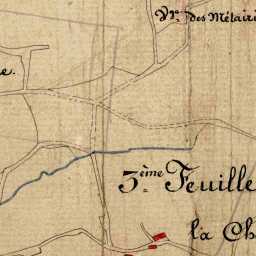 Vᵗᵉ des Métairi
e.
3ème Feuille
la Ch